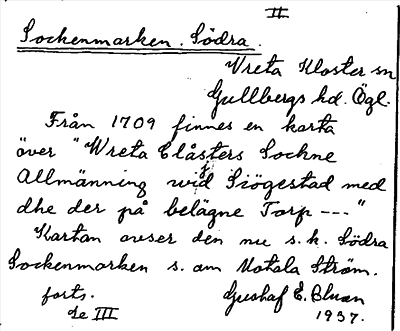 II
Sockenmarken. Södra.
Vreta Kloster sn
Gullbergs hd. Ögl.
Från 1709 finnes en karta
över "Wreta Clåsters Sockne
Allmänning wid Siögestad med
dhe der på belägne Torp ---"
Kartan avser den nu s.k. Södra
Sockenmarken s. om Motala Ström.
forts. Gustaf E. Bluan
se III 1937.